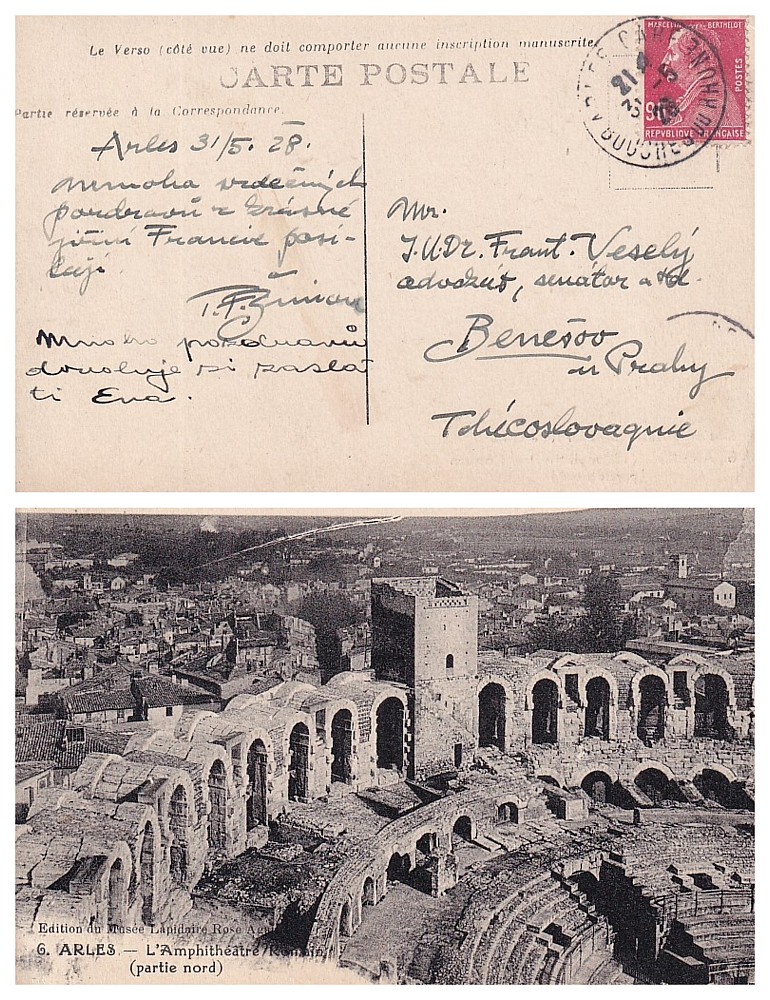 Le Verso (côté vue) ne doit comporter aucune inscription manuscrite.
CARTE POSTALE
Partie réservée à la Correspondance.
MARCELIN BERTHELOT
POSTES
90
REPVBLIQUE FRANÇAISE
21
31 -5
28
BOUCHES DU RHONE
Arles 31/5. 28.
Mnoha srdečných
pozdravů z krásné
jižní Francie posí-
lají
Mnoho pozdravů
dovoluje si zaslat
ti Eva.
Mr.
J.U.Dr. Frant. Veselý
advokát, senátor atd.
Benešov
u Prahy
Tchécoslovaquie
Edition du Musée Lapidaire Rose
6. ARLES — L'Amphithéâtre Romain
(partie nord)